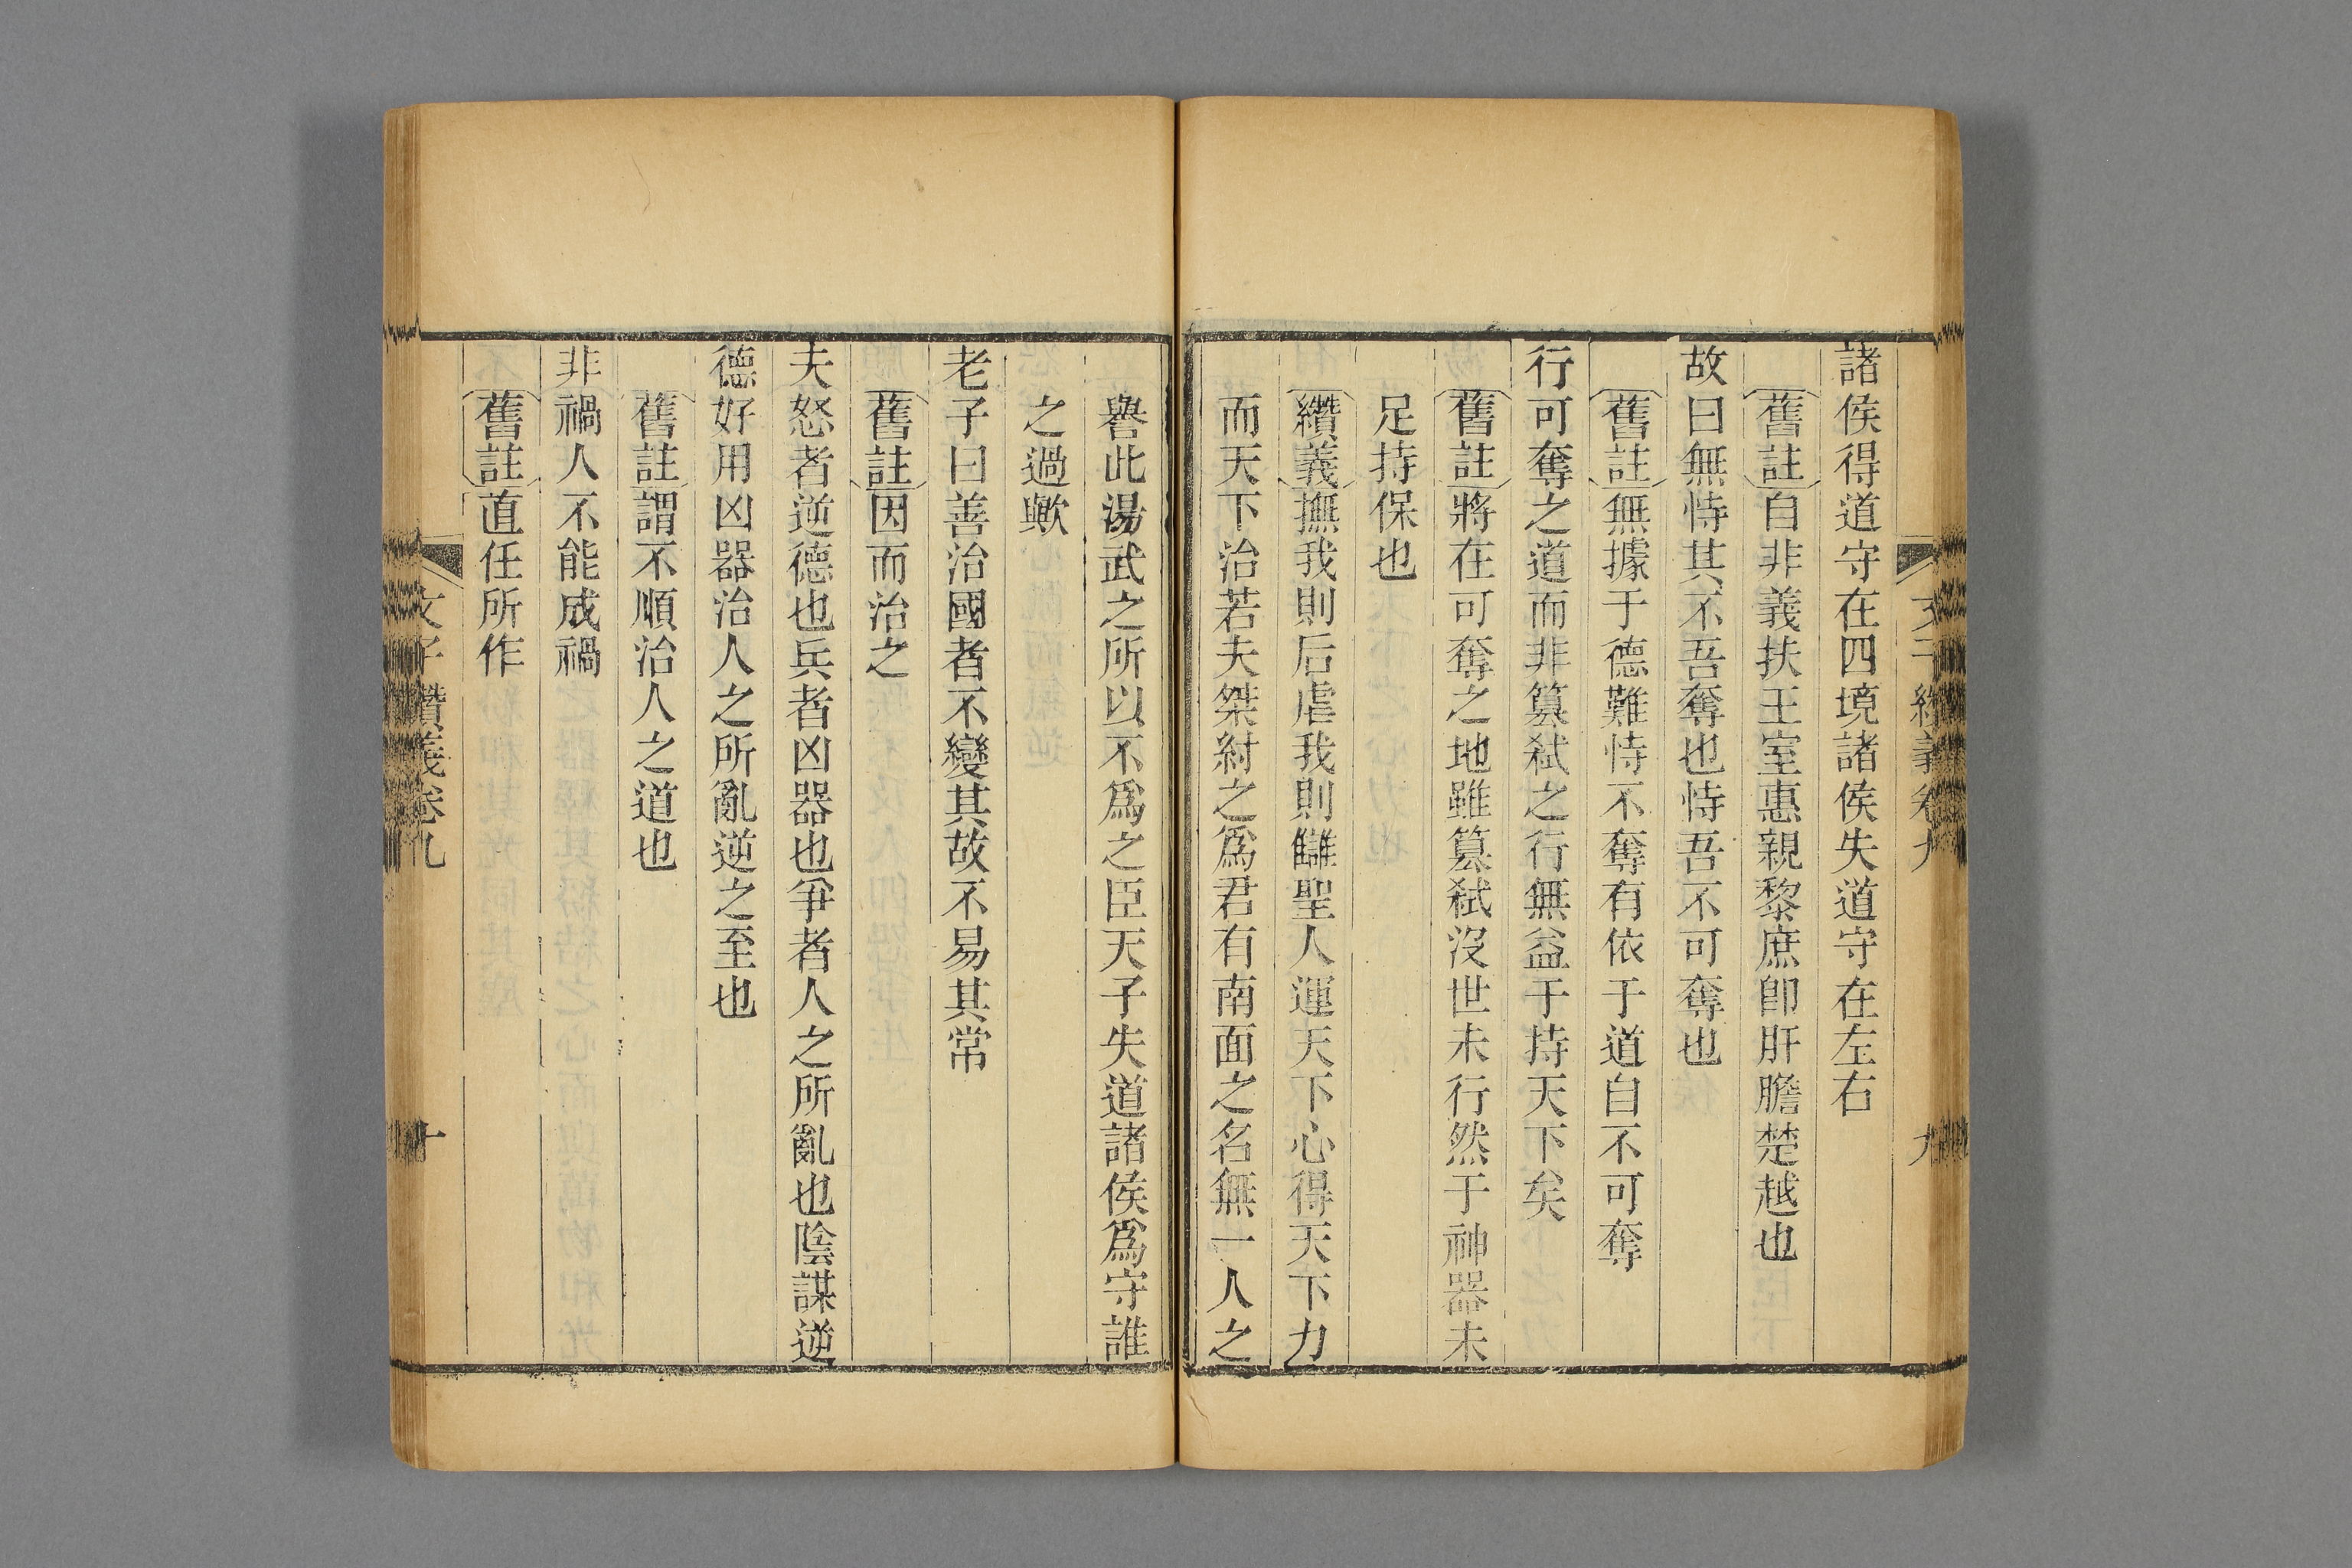 文子纘義卷九 九
諸侯得道守在四境諸侯失道守在左右
舊註自非義扶王室惠親黎庶卽肝膽楚越也
故曰無恃其不吾奪也恃吾不可奪也
舊註無據于德難恃不奪有依于道自不可奪
行可奪之道而非篡弒之行無益于持天下矣
舊註將在可奪之地雖篡弒沒世未行然于神器未
足持保也
纘義撫我則后虐我則讎聖人運天下心得天下力
而天下治若夫桀紂之爲君有南面之名無一人之
譽此湯武之所以不爲之臣天子失道諸侯爲守誰
之過歟
老子曰善治國者不變其故不易其常
舊註因而治之
夫怒者逆德也兵者凶器也爭者人之所亂也陰謀逆
德好用凶器治人之所亂逆之至也
舊註謂不順治人之道也
非禍人不能成禍
舊註直任所作
文子纘義卷九 十